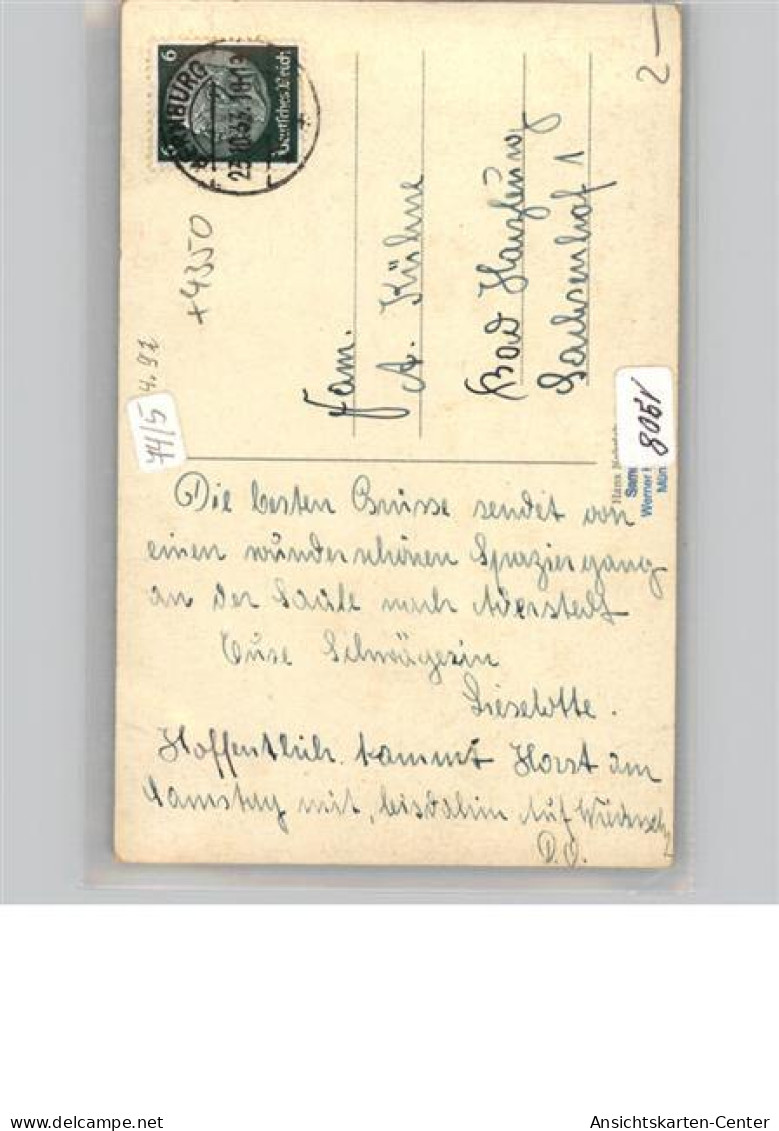 6
6
Deutsches Reich
NBURG
2-
+4350
4.92
74/5
Fam.
A. Kühne
Bad Harzburg
Sachsenhof 1
8051
Hans
Sam
Werner
Mün
Die besten Grüsse sendet von
einen wunderschönen Spaziergang
an der Saale nach Aderstedt
Eure Schwägerin
Lieselotte.
Hoffentlich kommt Horst am
Samstag mit, bis dahin Auf Wiedersehn
D.O.
Ansichtskarten-Center